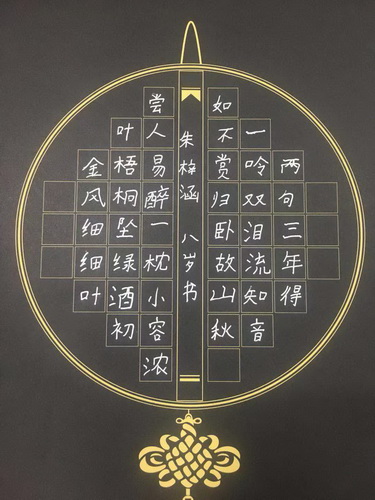 两句三年得
一吟双泪流知音
如不赏归卧故山秋
朱梓涵 八岁书
金风细细叶
叶梧桐坠绿酒初
尝人易醉一枕小容浓